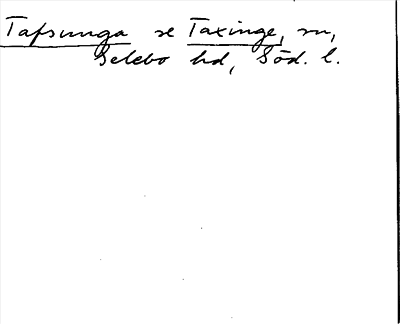 Tafsunga se Taxinge, sn,
Selebo hd, Söd. l.